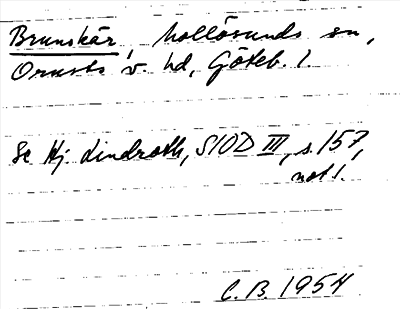 Brunskär, Mollösunds sn,
Orusts v. hd, Göteb. l.
Se Hj. Lindroth, SIOD III, s. 157,
not 1.
C.B. 1954